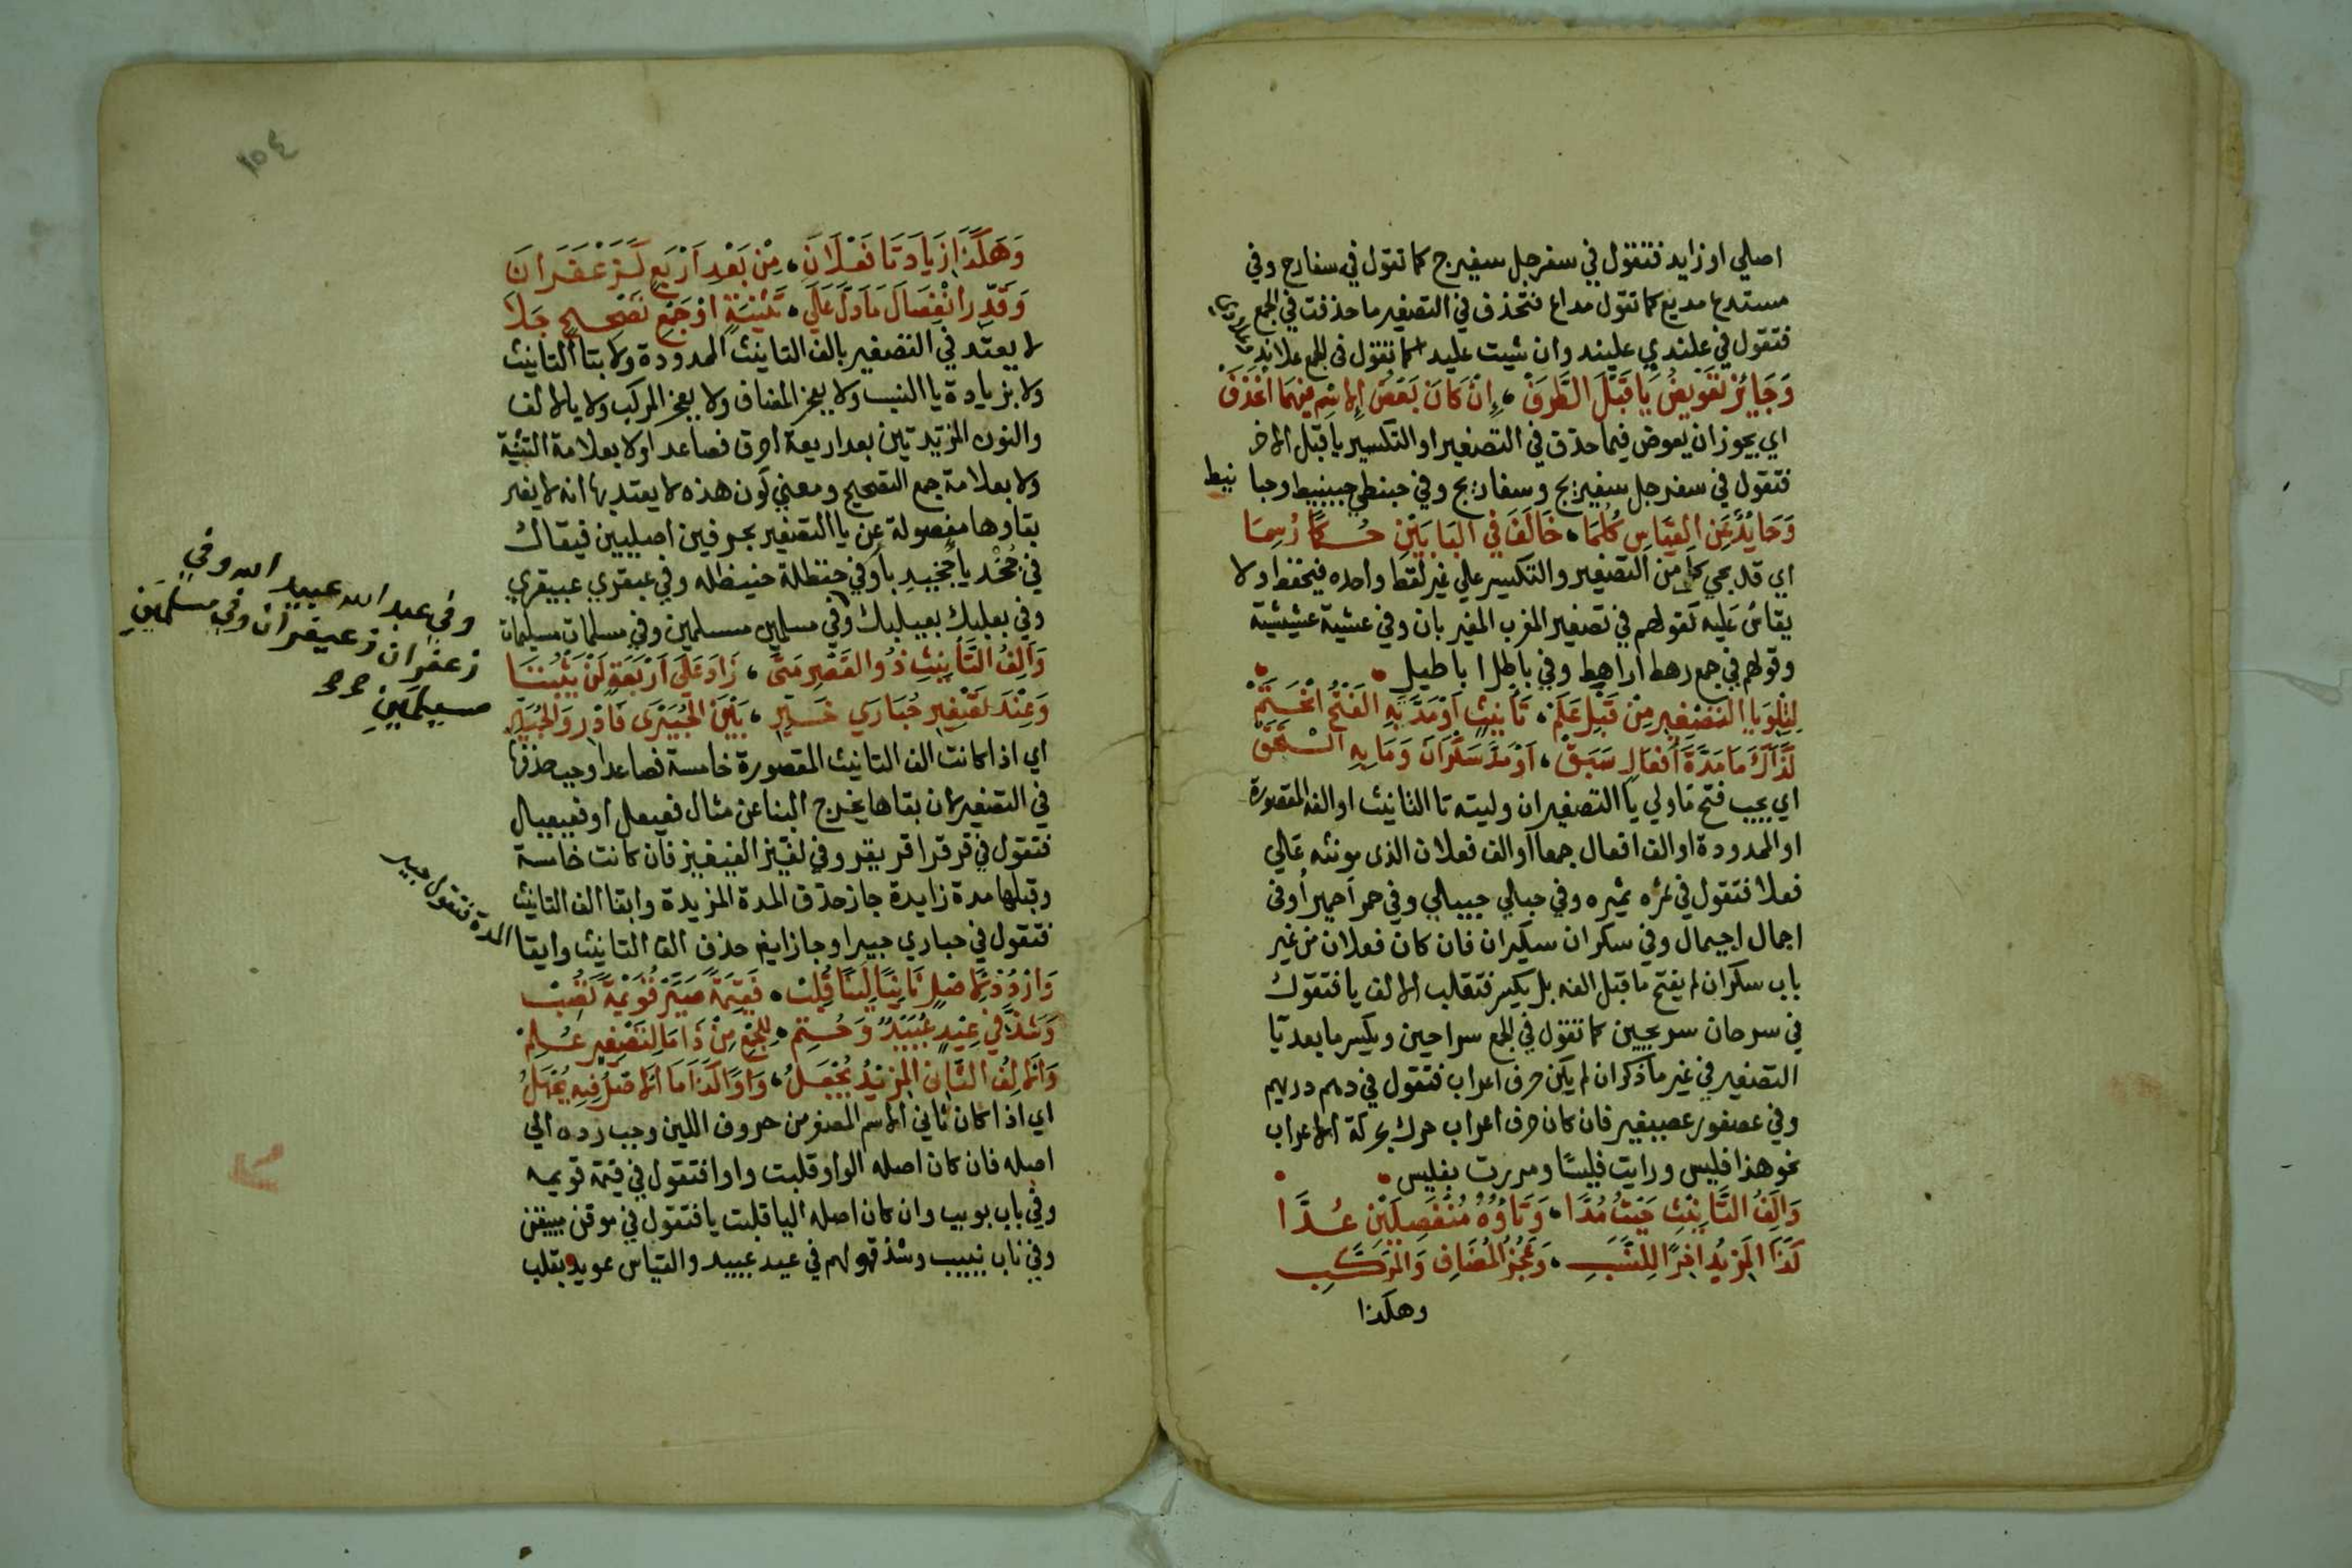 اصلي او زايد فتقول في سفرجل سفيرج كما تقول في سفارج وفي
مستدع مديع كما تقول مداع فتحذف في التصغير ما حذفت في الجمع
فتقول في علندي عليند وان شيت عليد كما تقول في الجمع علاند
وَجَائِزٌ تَعْوِيضُ يَا قَبْلَ الطَّرَفْ ، إِنْ كَانَ بَعْضُ الِاسْمِ فِيهِمَا انْحَذَفَ
اي يجوز ان يعوض فيما حذف في التصغير او التكسير يا قبل الاخر
فتقول في سفرجل سفيريج وسفاريج وفي حبنطي حبينيط وحبا نيط
وَحَائِدٌ عَنِ القِيَاسِ كُلُّمَا ، خَالَفَ فِي البَابَيْنِ حُكْمًا رُسِمَا
اي قد يجي كل من التصغير والتكسير علي غير لفظ واحده فيحفظ ولا
يقاس عليه كقولهم في تصغير المغرب المغيربان وفي عشية عشيشية
وقولهم في جمع رهط اراهط وفي باطل اباطيل
لِتِلْوِ يَا التَّصْغِيرِ مِنْ قَبْلِ عَلَمْ ، تَأْنِيثٍ اَوْ مَدَّتِهِ الْفَتْحُ انْحَتَمْ
كَذَاكَ مَا مَدَّةَ أَفْعَالٍ سَبَقْ ، اَوْ مَدَّ سَكْرَانَ وَمَا بِهِ الْتَحَقْ
اي يجب فتح ما ولي يا التصغير ان وليته تا التانيث او الفه المقصورة
او الممدودة او الف افعال جمعا او الف فعلان الذي مونثه علي
فعلا فتقول في تمره تميره وفي حبلي حبيلي وفي حمرا حميرا وفي
اجمال اجيمال وفي سكران سكيران فان كان فعلان من غير
باب سكران لم يفتح ما قبل الفه بل يكسر فتقلب الالف يا فتقول
في سرحان سريحين كما تقول في الجمع سراحين ويكسر ما بعد يا
التصغير في غير ما ذكر ان لم يكن حرف اعراب فتقول في درهم دريهم
وفي عصفور عصيفير فان كان حرف اعراب حرك بحركة الاعراب
نحو هذا فليس ورايت فليسا ومررت بفليس
وَالِفُ التَّانِيْثِ حَيْثُ مُدَّا ، وَتَاؤُهُ مُنْفَصِلَيْنِ عُدَّا
كَذَا المَزِيدُ اخِرًا لِلنَّسَبِ ، وَعَجُزُ المُضَافِ وَالمُرَكَّبِ
وهكذا
وَهَكَذَا زِيَادَتَا فَعْلَانَ ، مِنْ بَعْدِ اَرْبَعٍ كَزَعْفَرَانَ
وَقَدِّرِ انْفِصَالَ مَا دَلَّ عَلَي ، تَثْنِيَةٍ اوْ جَمْعِ تَصْحِيحٍ جَلَا
لا يعتد في التصغير بالف التانيث الممدودة ولا بتا التانيث
ولا بزيادة يا النسب ولا بعجز المضاف ولا بعجز المركب ولا بالالف
والنون المزيدتين بعد اربعة احرف فصاعدا ولا بعلامة التثنية
ولا بعلامة جمع التصحيح ومعني كون هذه لا يعتد بها انه لا يضر
بقاوها مفصولة عن يا التصغير بحرفين اصليين فيقال
في جُخْدُبا جخيدبا وفي حنظلة حنيظله وفي عبقري عبيقري
وفي بعلبك بعيلبك وفي مسلمين مسيلمين وفي مسلمات مسيلمات
وفي عبد الله عبيد الله وفي
زعفران زعيفران وفي مسلمَينِ
مسيلمَينِ
وَاَلِفُ التَّأْنِيثِ ذُو القَصْرِ مَتَى ، زَادَ عَلَى اَرْبَعَةٍ لَنْ يَثْبُتَا
وَعِنْدَ تَصْغِيرِ حُبَارَي خَيِّرِ ، بَيْنَ الحُبَيْرَى فَادْرِ وَالحُبَيِّرِ
اي اذا كانت الف التانيث المقصورة خامسة فصاعدا وجب حذفها
في التصغير لان بقاها يخرج البنا عن مثال فعيعل او فعيعيل
فتقول في قرقرا قريقر وفي لغيزا لغيغيز فان كانت خامسة
وقبلها مدة زايدة جاز حذف المدة المزيدة وابقا الف التانيث
فتقول في حباري حبيرا وجاز ايض حذف الف التانيث وابقا
المدة فتقول حبير
وَارْدُدْ لِأَصْلٍ ثَانِيًا لَيِّنًا قُلِبْ ، فَقِيمَةً صَيِّرْ قُوَيْمَةً تُصِبْ
وَشَذَّ فِي عِيدٍ عُيَيْدٌ وَحُتِمْ ، لِلجَمْعِ مِنْ ذَا مَا لِتَصْغِيرٍ عُلِمْ
وَالالِفُ الثَّانِ المَزِيدُ يُجْعَلُ ، وَاوًا كَذَا مَا الاصْلُ فِيهِ يُجْهَلُ
اي اذا كان ثاني الاسم المصغر من حروف اللين وجب رده الي
اصله فان كان اصله الواو قلبت واوا فتقول في قيمة قويمه
وفي باب بويب وان كان اصله اليا قلبت يا فتقول في موقن مييقن
وفي ناب نييب وشذ قولهم في عيد عييد والقياس عويد بقلب